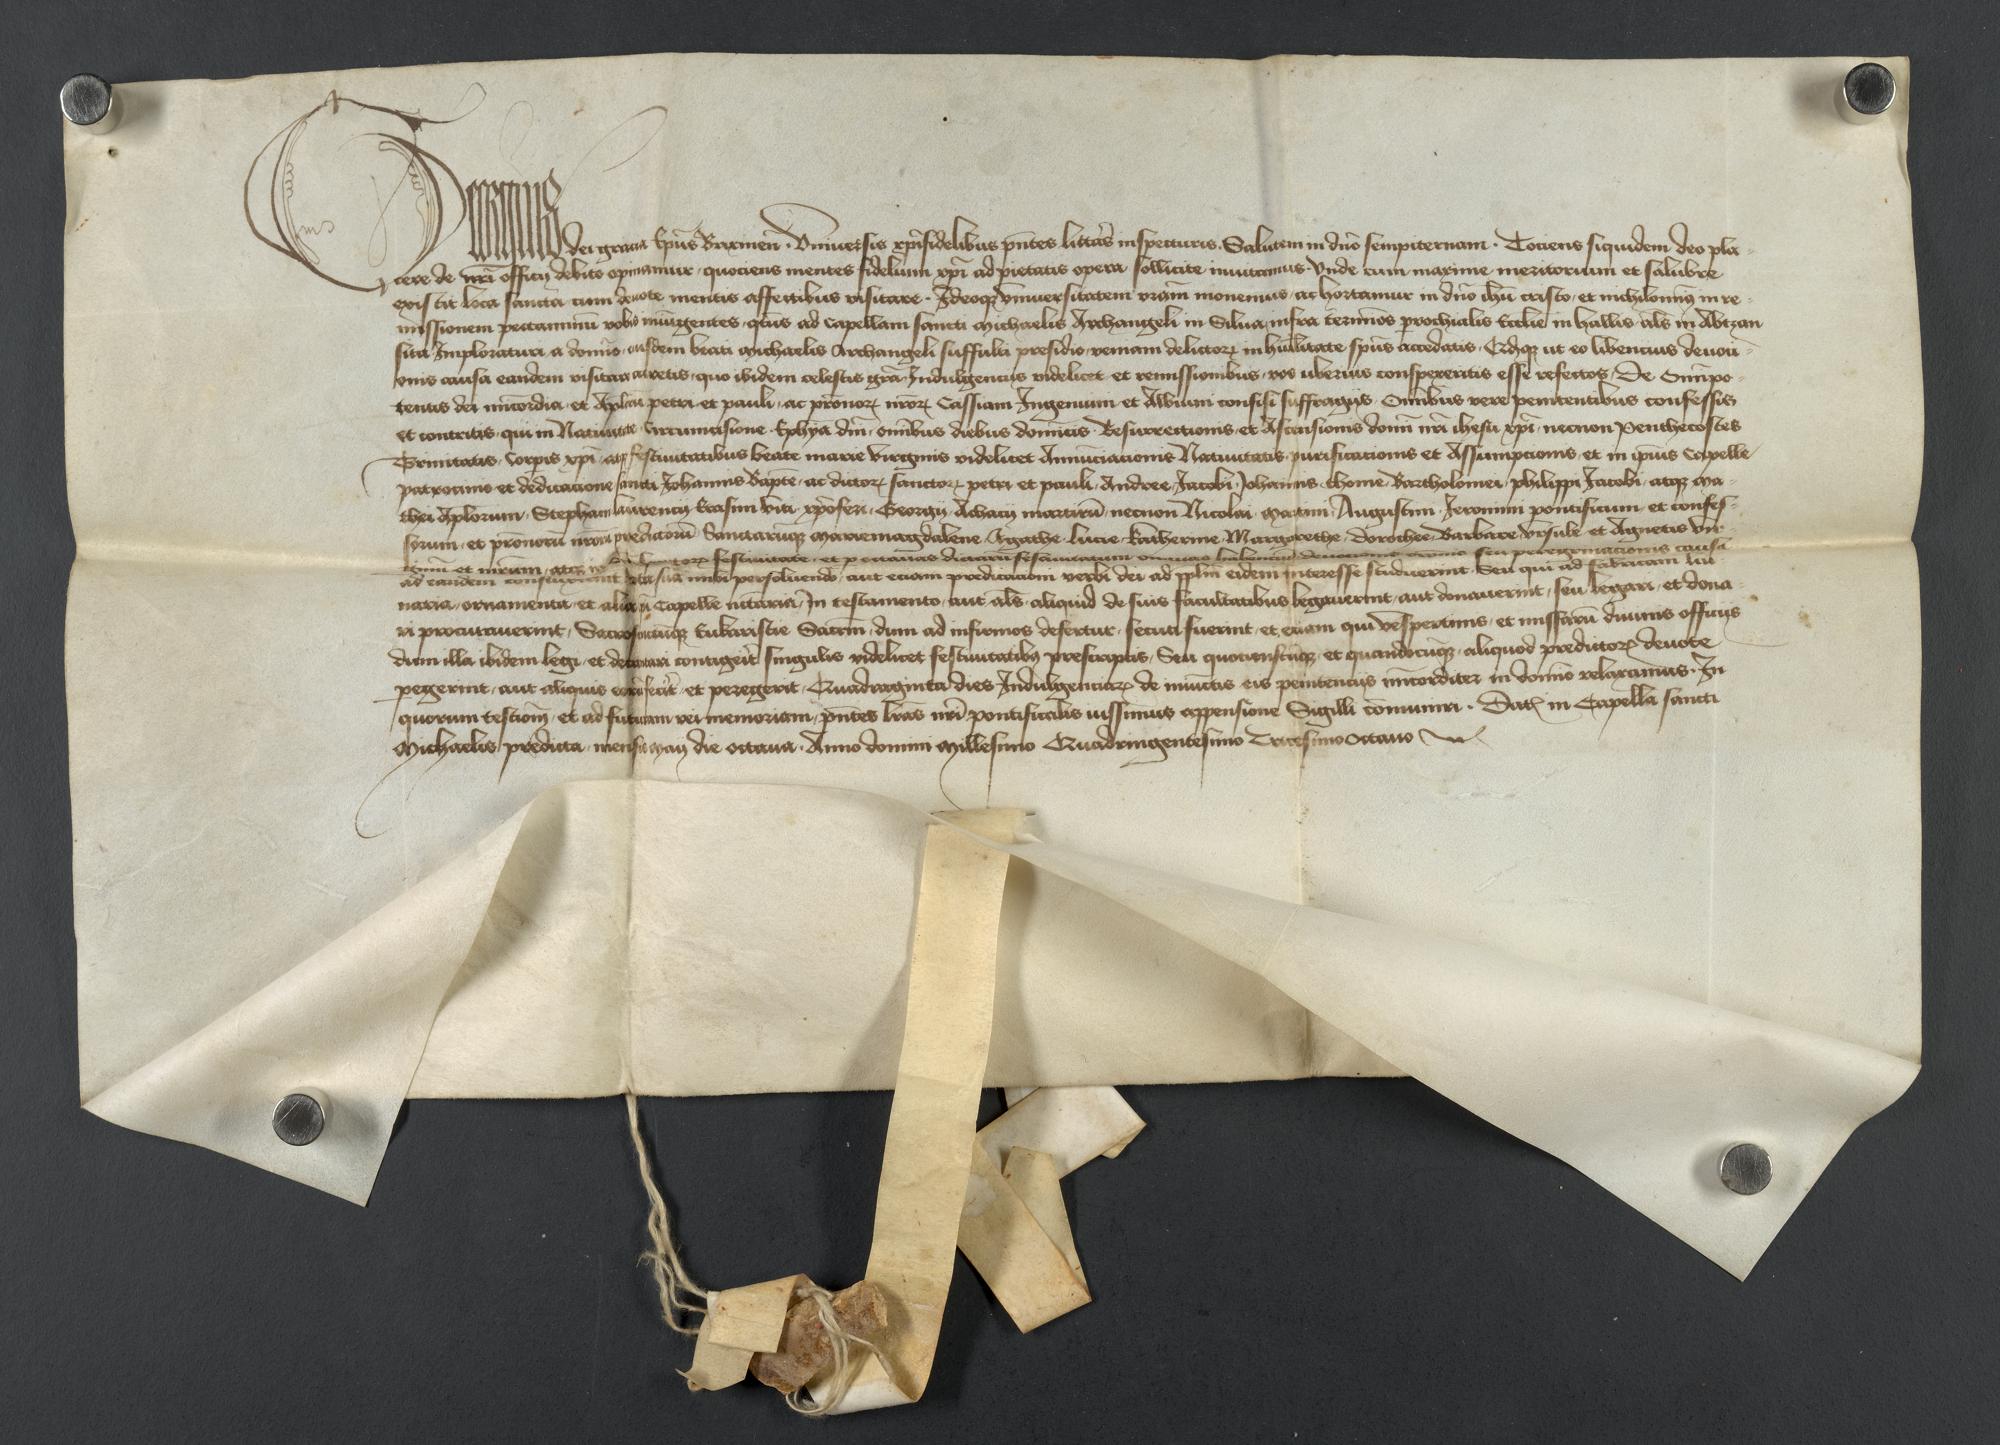 Georius dei gracia Ep̄us Brixineñ · Vniuersis xp̄ifidelibus p̄ntes litt̄as inspecturis · Salutem in dn̄o sempiternam · Tociens siquidem deo pla-
cere de nr̄i officij debito opinamur · quociens mentes fidelium xp̄i ad pietatis opera sollicite inuitamus · Vnde cum maxime meritorium et salubre
existit loca sancta cum deuote mentis affectibus visitare · Ideoq; vniuersitatem vr̄am monemus · ac hortamur in dn̄o ih̄u cristo · et nichilomin⁹ in re-
missionem peccaminū vobis iniūgentes · q̄tus ad Capellam sancti Michaelis Archangeli in Silua infra termīos p̄rochialis Ecclie in hallis · al̄s in Abtzan
sita Imploraturi a domīo · eiusdem beati Michaelis Archangeli suffulti presidio · veniam delictoꝝ in hūilitate sp̄us accedatis · Cūq; ut eo libencius deuoti-
onis causa eandem visitare curetis · quo ibidem celestis gr̄a Indulgencijs videlicet et remissionibus · vos uberius conspexeritis esse refectos · De Omīpo-
tentis dei mīcordia · et Apl̄oꝝ petri et pauli · ac pr̄onoꝝ nr̄oꝝ Cassiani Ingenuini et Albuini confisi suffragijs · Omībus vere penitentibus confessis
et contritis · qui in Natiuitate · Circumcisione · Ephÿa dn̄i · omībus diebus domīcis · Resurrectionis · et Ascensionis domī nr̄i ihesu xp̄i · necnon Penthecostes
Trinitatis · Corpis xp̄i · atq; festiuitatibus beate marie virginis videlicet Annūciacionis Natiuitatis · purificacionis et Assumpcionis · et in ip̄ius Capelle
patrocinio et dedicacione sancti Johannis Bapt̄e · ac dictoꝝ sanctoꝝ petri et pauli · Andree · Jacobi · Johannis · thome · Bartholomei · philippi Jacobi · atq; Ma-
thei Apl̄orum · Stephani laurencij Erasmi viti · xp̄oferi · Georgij · Achacij martirū · necnon Nicolai · Martini · Augustini · Jeronimi pontificum · et confes-
sorum · et pr̄onorū nr̄orū predictorū · Sanctarūq; Mariemagdalene · Agathe · lucie · katherine · Margarethe · Dorothee · Barbare · Vrsule · et Agnetis vir-
ginū et mr̄um ·
ad eandem confluxerint vota sua inibi persoluendo · aut eciam predicacioni verbi dei ad pplm̄ eidem interesse studuerint · Seu qui ad fabricam lu-
naria · ornamenta · et alia Capelle nec̄aria · In testamento · aut al̄s aliquid de suis facultatibus legauerint · aut donauerint · seu legari · et dona-
ri procurauerint · Sacrosanctūq; Eukaristie Sacr̄m · dum ad infirmos defertur · secuti fuerint · et eciam qui vespertinis · et missarū diuinis officijs
dum illa ibidem legi · et decantari contigerīt singulis videlicet festiuitatib⁹ prescriptis · Seu quocienscūq; · et quandocūq; · aliquod predictoꝝ deuote
pegerint · aut aliquis eorū fecerit · et peregerit · Quadraginta dies Indulgenciaꝝ de iniūctis eis penitencijs mīcorditer in domīo relaxamus · In
quorum testioīm · et ad futuram rei memoriam · p̄ntes lr̄as nr̄i pontificalis iussimus appensione Sigilli cōmuniri · Dat̄ in Capella sancti
Michaelis predicta · mensis Maij die octaua · Anno domini Millesimo Quadringentesimo Tricesimooctauo